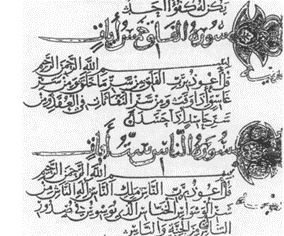 يكن له كفؤا احد
سورة الفلق خمس آيات
بسم الله الرحمن الرحيم
قل اعوذ برب الفلق من شر ما خلق ومن شر
غاسق اذا وقب ومن شر النفاثات في العقد ومن
شر حاسد اذا حسد
سورة الناس ست آيات
بسم الله الرحمن الرحيم
قل اعوذ برب الناس ملك الناس اله الناس من
شر الوسواس الخناس الذي يوسوس في صدور
الناس من الجنة والناس